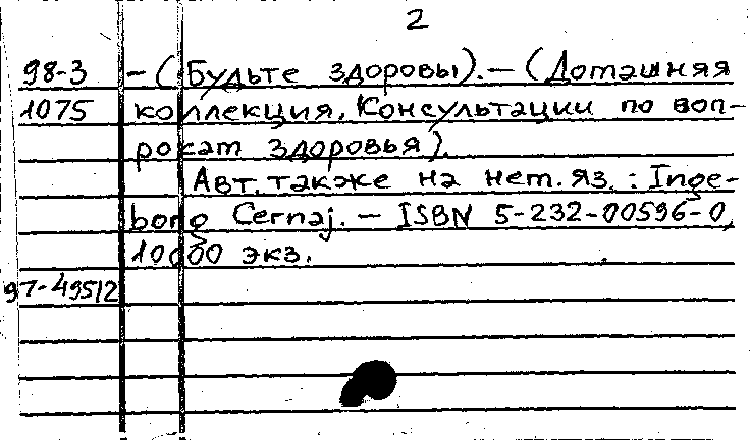 2
98-3 — (Будьте здоровы). — (Домашняя
1075 коллекция. Консультации по воп-
росам здоровья).
Авт. также на нем. яз. : Inge-
borg Cernaj. — ISBN 5-232-00596-0,
10000 экз.
97-49512